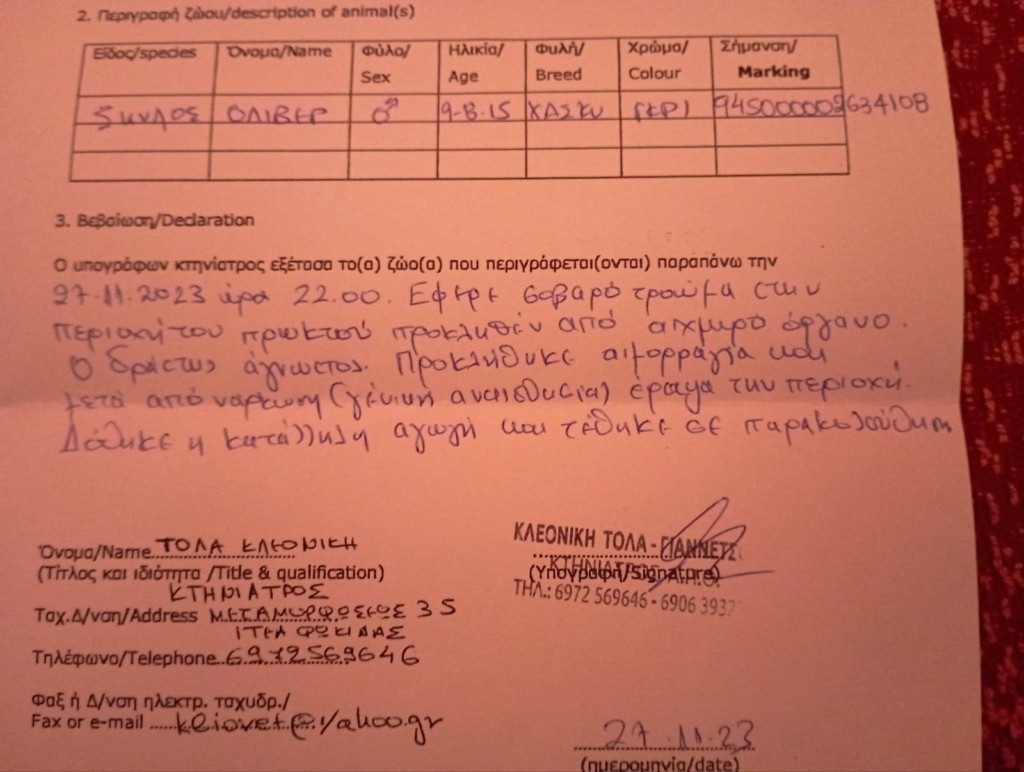 2. Περιγραφή ζώου/description of animal(s)
Είδος/species Όνομα/Name Φύλο/ Sex Ηλικία/ Age Φυλή/ Breed Χρώμα/ Colour Σήμανση/ Marking
ΣΚΥΛΟΣ ΟΛΙΒΕΡ ♂ 9-8-15 ΧΑΣΚΥ ΓΚΡΙ 945000002634108
3. Βεβαίωση/Declaration
Ο υπογράφων κτηνίατρος εξέτασα το(α) ζώο(α) που περιγράφεται(ονται) παραπάνω την
27.11.2023 ώρα 22.00. Έφερε σοβαρό τραύμα στην
περιοχή του πρωκτού προκληθέν από αιχμηρό όργανο.
Ο δράστης άγνωστος. Προκλήθηκε αιμορραγία και
μετά από νάρκωση (γενική αναισθησία) έραψα την περιοχή.
Δόθηκε η κατάλληλη αγωγή και τέθηκε σε παρακολούθηση
Όνομα/Name ΤΟΛΑ ΚΛΕΟΝΙΚΗ
(Τίτλος και ιδιότητα /Title & qualification)
ΚΤΗΝΙΑΤΡΟΣ
Ταχ.Δ/νση/Address ΜΕΤΑΜΟΡΦΩΣΕΩΣ 35
ΙΤΕΑ ΦΩΚΙΔΑΣ
Τηλέφωνο/Telephone 6972569646
Φαξ ή Δ/νση ηλεκτρ. ταχυδρ./
Fax or e-mail kleovet@yahoo.gr
ΚΛΕΟΝΙΚΗ ΤΟΛΑ - ΓΙΑΝΝΕΤΣ
ΚΤΗΝΙΑΤΡΟΣ
(Υπογραφή/Signature)
ΤΗΛ.: 6972 569646 - 6906 3937
27.11.23
(ημερομηνία/date)